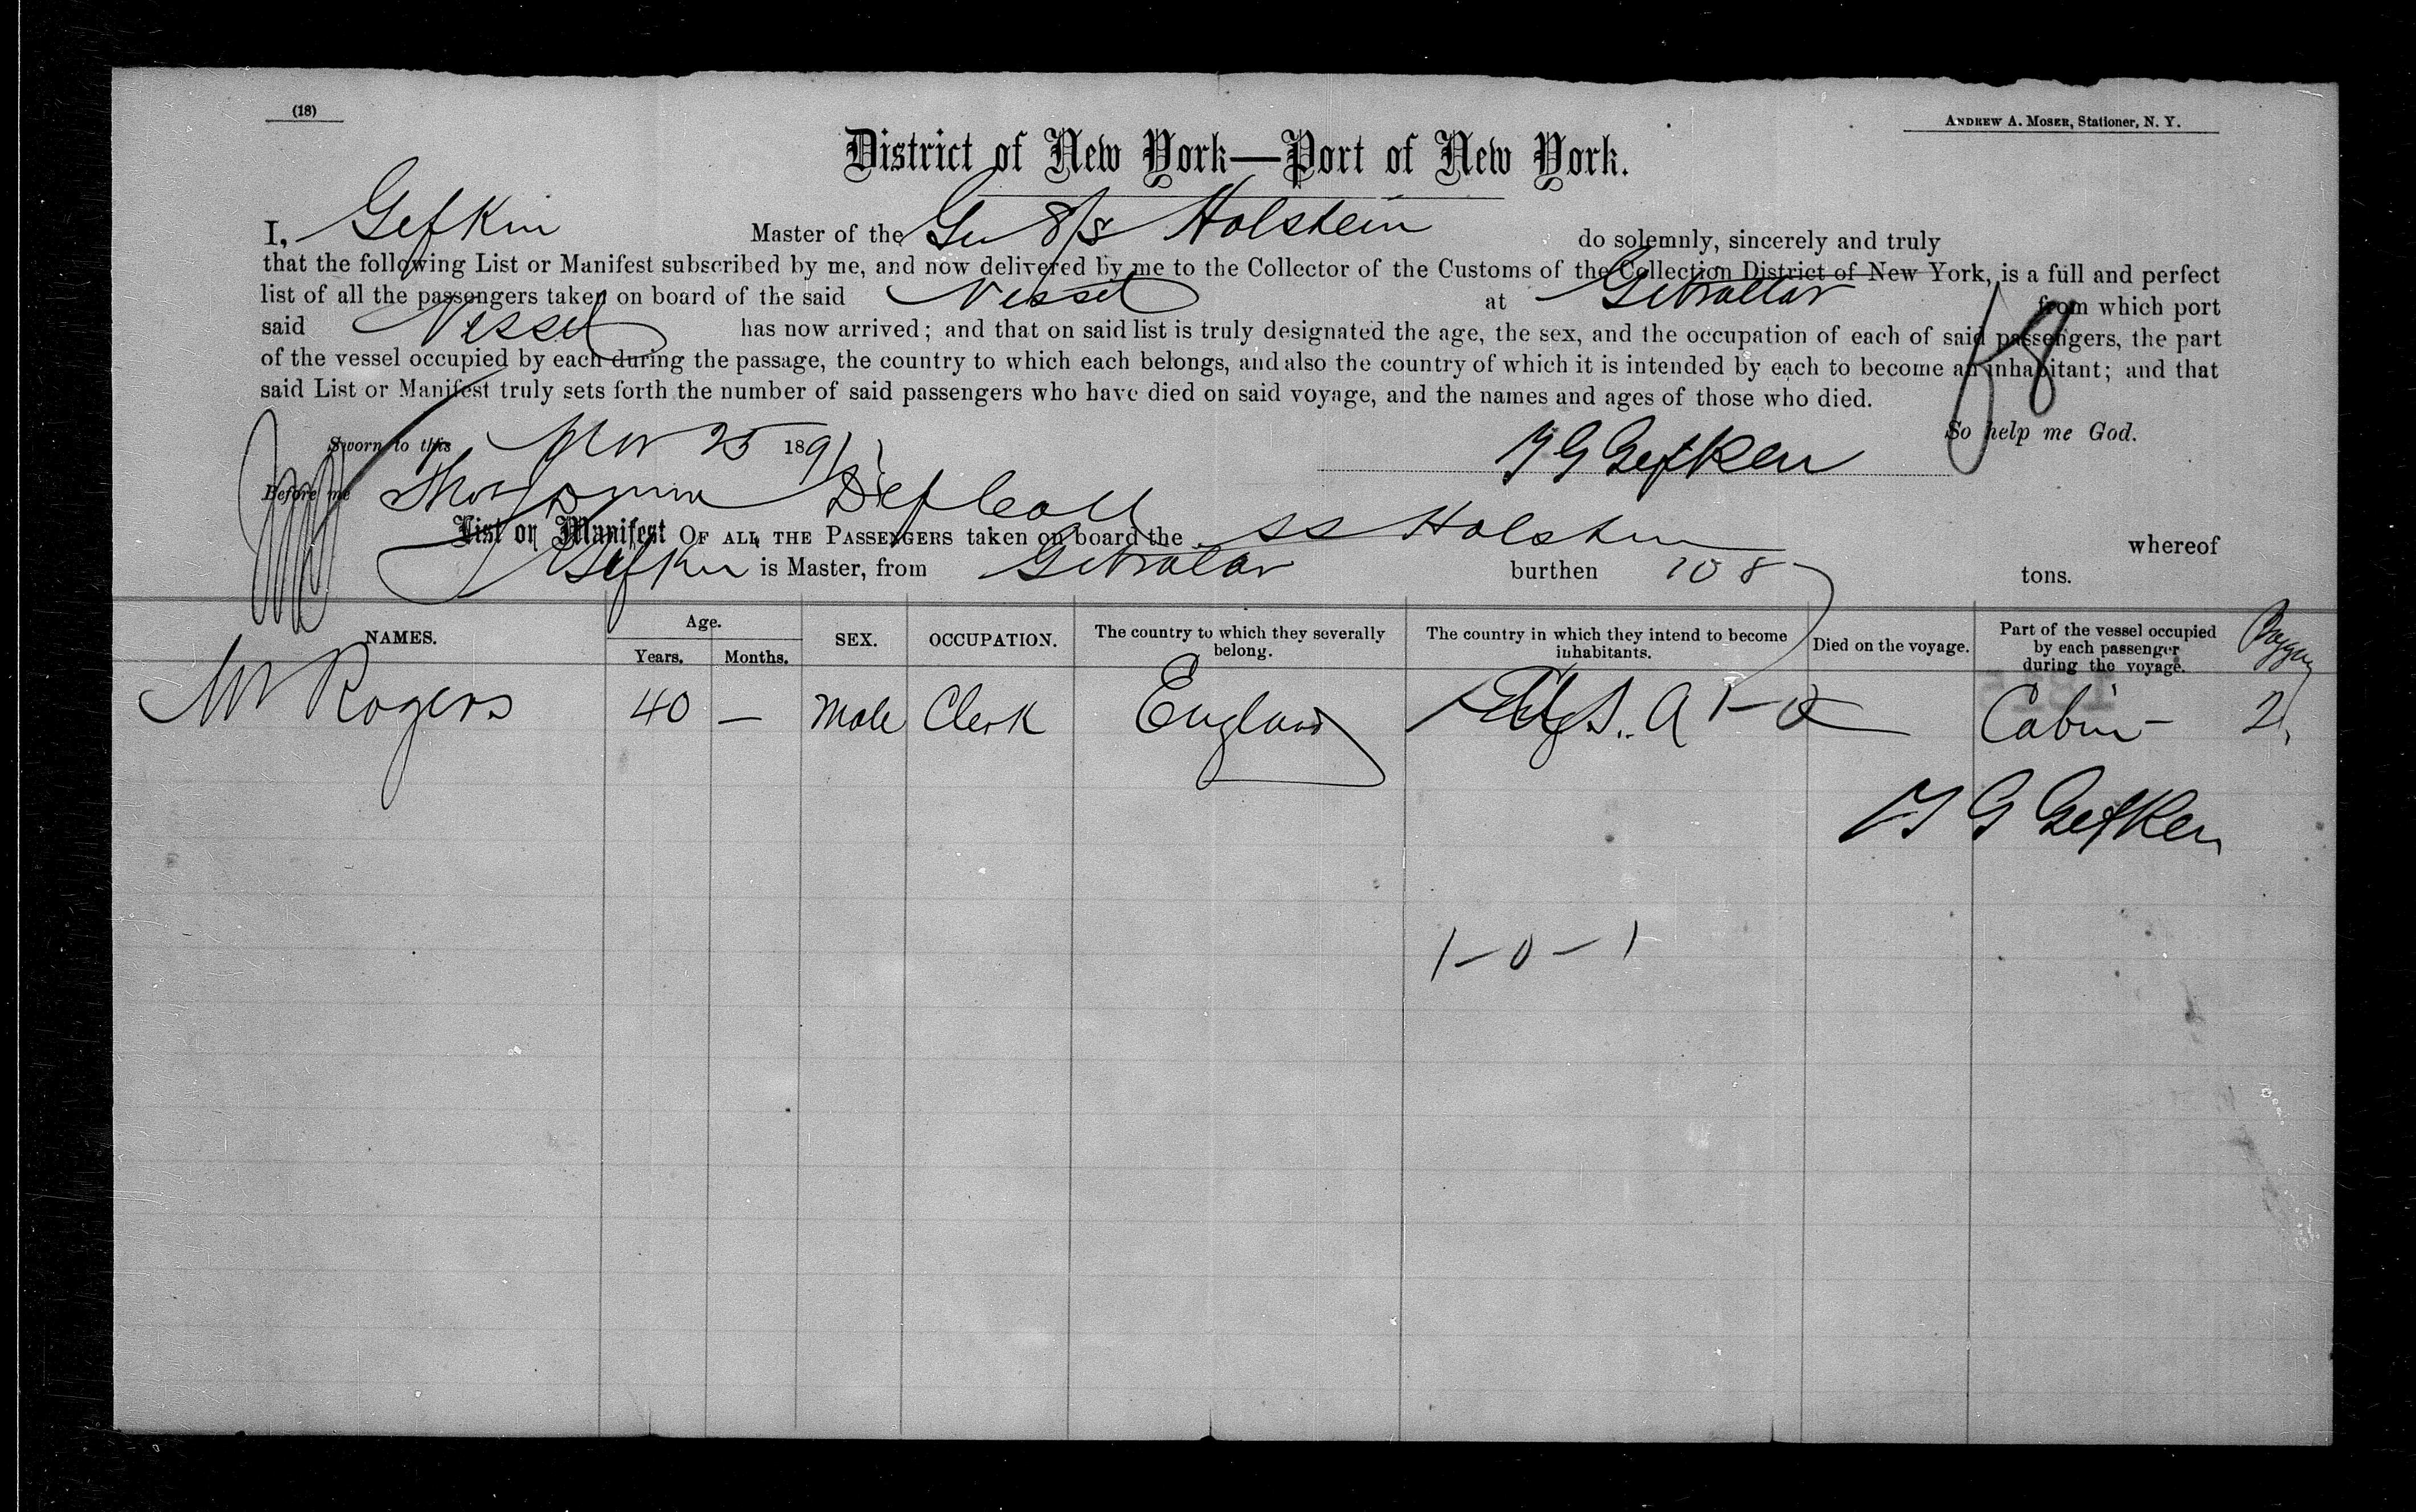 (18)
ANDREW A. MOSER, Stationer, N. Y.
District of New York—Port of New York.
I, Gefkin Master of the Ger S/S Holstein do solemnly, sincerely and truly
that the following List or Manifest subscribed by me, and now delivered by me to the Collector of the Customs of the Collection District of New York, is a full and perfect
list of all the passengers taken on board of the said Vessel at Gibraltar from which port
said Vessel has now arrived; and that on said list is truly designated the age, the sex, and the occupation of each of said passengers, the part
of the vessel occupied by each during the passage, the country to which each belongs, and also the country of which it is intended by each to become an inhabitant; and that
said List or Manifest truly sets forth the number of said passengers who have died on said voyage, and the names and ages of those who died.
So help me God.
Sworn to this 25 1891 G Gefken
Before me Dep Coll
List or Manifest OF ALL THE PASSENGERS taken on board the SS Holstein whereof
Gefken is Master, from Gibralar burthen tons.
NAMES. Age. Years. Months. SEX. OCCUPATION. The country to which they severally belong. The country in which they intend to become inhabitants. Died on the voyage. Part of the vessel occupied by each passenger during the voyage.
Mr Rogers 40 — Male Clerk England U.S. A 1-0 Cabin 2
G Gefken
1-0-1